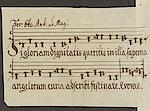 Gloriam dignitatis queritis in illa superna
angelorum curia adscribi festinate. Evovae.